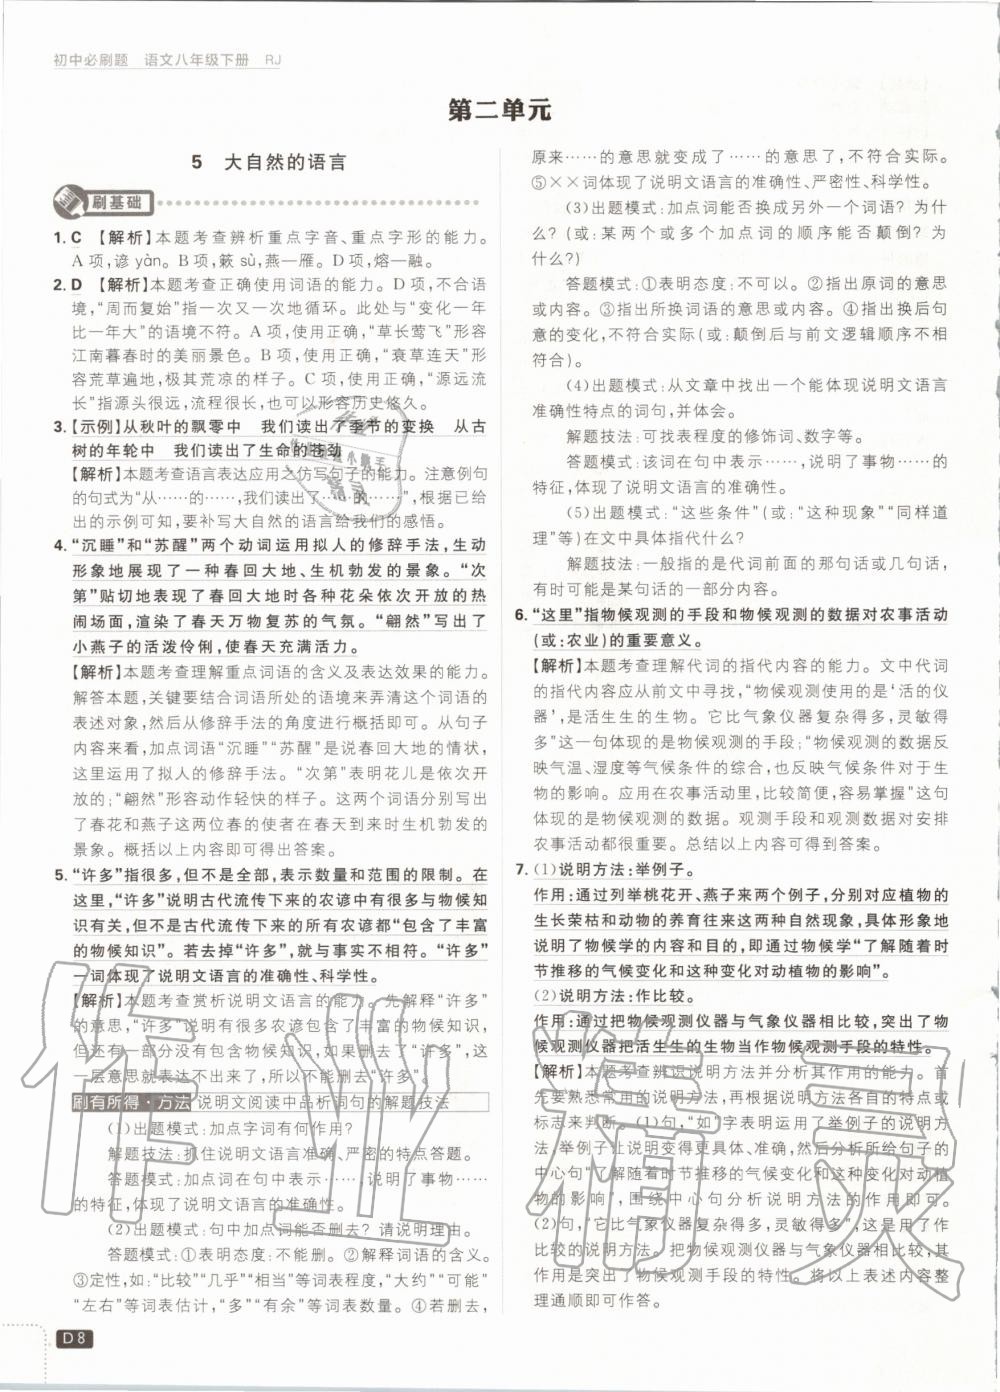 初中必刷题 语文八年级下册 RJ
第二单元
5 大自然的语言
刷基础
1. C 【解析】本题考查辨析重点字音、重点字形的能力。
A项,谚yàn。B项,簌sù,燕—雁。D项,熔—融。
2. D 【解析】本题考查正确使用词语的能力。D项,不合语
境,“周而复始”指一次又一次地循环。此处与“变化一年
比一年大”的语境不符。A项,使用正确,“草长莺飞”形容
江南暮春时的美丽景色。B项,使用正确,“衰草连天”形
容荒草遍地,极其荒凉的样子。C项,使用正确,“源远流
长”指源头很远,流程很长,也可以形容历史悠久。
3. 【示例】从秋叶的飘零中 我们读出了季节的变换 从古
树的年轮中 我们读出了生命的苍劲
【解析】本题考查语言表达应用之仿写句子的能力。注意例句
的句式为“从……的……,我们读出了……的……”,根据已给
出的示例可知,要补写大自然的语言给我们的感悟。
4. “沉睡”和“苏醒”两个动词运用拟人的修辞手法,生动
形象地展现了一种春回大地、生机勃发的景象。“次
第”贴切地表现了春回大地时各种花朵依次开放的热
闹场面,渲染了春天万物复苏的气氛。“翩然”写出了
小燕子的活泼伶俐,使春天充满活力。
【解析】本题考查理解重点词语的含义及表达效果的能力。
解答本题,关键要结合词语所处的语境来弄清这个词语的
表述对象,然后从修辞手法的角度进行概括即可。从句子
内容来看,加点词语“沉睡”“苏醒”是说春回大地的情状,
这里运用了拟人的修辞手法。“次第”表明花儿是依次开
放的;“翩然”形容动作轻快的样子。这两个词语分别写出
了春花和燕子这两位春的使者在春天到来时生机勃发的
景象。概括以上内容即可得出答案。
5. “许多”指很多,但不是全部,表示数量和范围的限制。在
这里,“许多”说明古代流传下来的农谚中有很多与物候知
识有关,但不是古代流传下来的所有农谚都“包含了丰富
的物候知识”。若去掉“许多”,就与事实不相符。“许多”
一词体现了说明文语言的准确性、科学性。
【解析】本题考查赏析说明文语言的能力。先解释“许多”
的意思,“许多”说明有很多农谚包含了丰富的物候知识,
但还有一部分没有包含物候知识,如果删去了“许多”,这
一层意思就表达不出来了,所以不能删去“许多”。
刷有所得·方法 说明文阅读中品析词句的解题技法
(1)出题模式:加点字词有何作用?
解题技法:抓住说明文语言准确、严密的特点答题。
答题模式:加点词在句中表示……,说明了事物……
的特征,体现了说明文语言的准确性。
(2)出题模式:句中加点词能否删去?请说明理由。
答题模式:①表明态度:不能删。②解释词语的含义。
③定性,如:“比较”“几乎”“相当”等词表程度,“大约”“可能”
“左右”等词表估计,“多”“有余”等词表数量。④若删去,
原来……的意思就变成了……的意思了,不符合实际。
⑤××词体现了说明文语言的准确性、严密性、科学性。
(3)出题模式:加点词能否换成另外一个词语?为什
么?(或:某两个或多个加点词的顺序能否颠倒?为
什么?)
答题模式:①表明态度:不可以。②指出原词的意思
或内容。③指出所换词语的意思或内容。④指出换后句
意的变化,不符合实际(或:颠倒后与前文逻辑顺序不相
符合)。
(4)出题模式:从文章中找出一个能体现说明文语言
准确性特点的词句,并体会。
解题技法:可找表程度的修饰词、数字等。
答题模式:该词在句中表示……,说明了事物……
的特征,体现了说明文语言的准确性。
(5)出题模式:“这些条件”(或:“这种现象”“同样道
理”等)在文中具体指代什么?
解题技法:一般指的是代词前面的那句话或几句话,
有时可能是某句话的一部分内容。
6. “这里”指物候观测的手段和物候观测的数据对农事活动
(或:农业)的重要意义。
【解析】本题考查理解代词的指代内容的能力。文中代词
的指代内容应从前文中寻找,“物候观测使用的是‘活的仪
器’,是活生生的生物。它比气象仪器复杂得多,灵敏得
多”这一句体现的是物候观测的手段;“物候观测的数据反
映气温、湿度等气候条件的综合,也反映气候条件对于生
物的影响。应用在农事活动里,比较简便,容易掌握”这句
体现的是物候观测的数据。观测手段和观测数据对安排
农事活动都很重要。总结以上内容可得到答案。
7. (1)说明方法:举例子。
作用:通过列举桃花开、燕子来两个例子,分别对应植物的
生长荣枯和动物的养育往来这两种自然现象,具体形象地
说明了物候学的内容和目的,即通过物候学“了解随着时
节推移的气候变化和这种变化对动植物的影响”。
(2)说明方法:作比较。
作用:通过把物候观测仪器与气象仪器相比较,突出了物
候观测仪器把活生生的生物当作物候观测手段的特性。
【解析】本题考查辨识说明方法并分析其作用的能力。首
先要熟悉常用的说明方法,再根据说明方法各自的特点或
标志来判断。(1)句,“如”字表明运用了举例子的说明方
法,举例子让说明变得更具体、准确,然后分析所给句子的
中心句“了解随着时节推移的气候变化和这种变化对动植
物的影响”,围绕中心句分析说明方法的作用即可。
(2)句,“它比气象仪器复杂得多,灵敏得多”,运用了作
比较的说明方法。把物候观测仪器与气象仪器相比较,
作用是突出了物候观测手段的特性。将以上表述内容整
理通顺即可作答。
D8
作业精灵